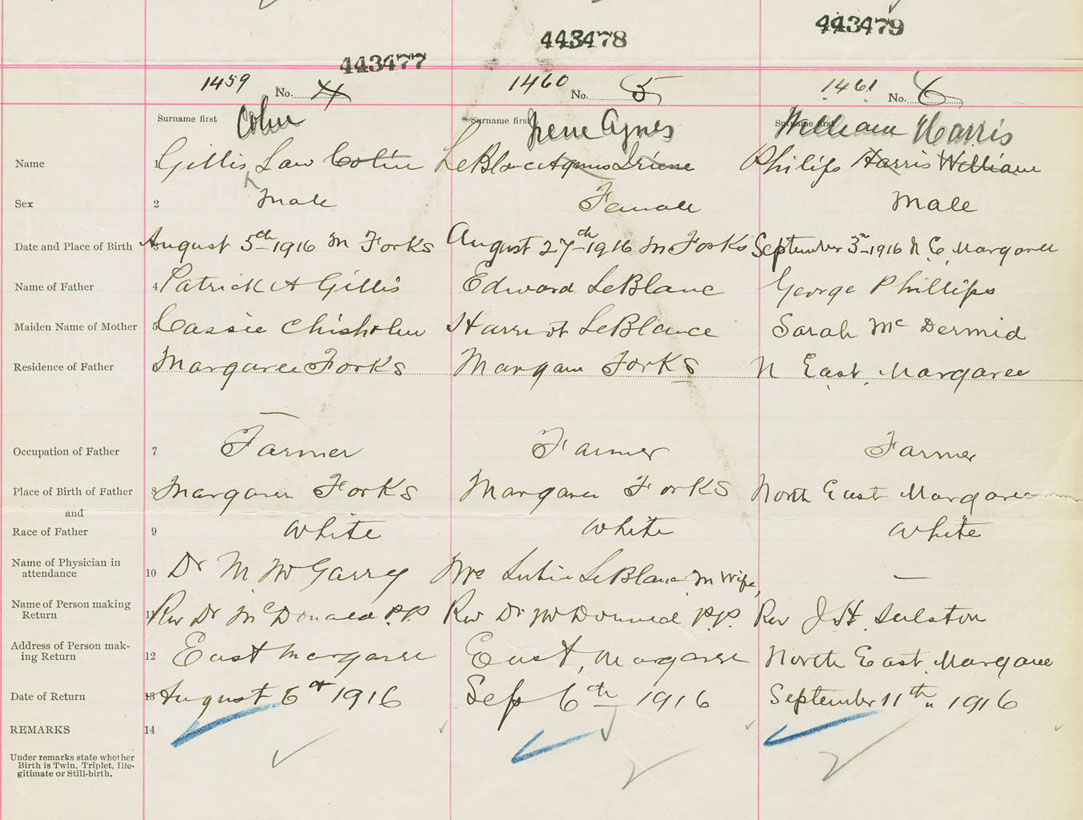 443477 443478 443479
1459 No. 4 1460 No. 5 1461 No. 6
Surname first Colin Surname first Irene Agnes Surname first William Harris
Name 1 Gillis Law Colin LeBlanc Agnes Iriene Philips Harris William
Sex 2 Male Female Male
Date and Place of Birth 3 August 5th 1916 M Forks August 27th 1916 M Forks September 3rd 1916 N. E. Margaree
Name of Father 4 Patrick A Gillis Edward LeBlanc George Phillips
Maiden Name of Mother 5 Cassie Chisholm Harriot LeBlance Sarah McDermid
Residence of Father 6 Margaree Forks Margaree Forks N East Margaree
Occupation of Father 7 Farmer Farmer Farmer
Place of Birth of Father 8 Margaree Forks Margaree Forks North East Margaree
and
Race of Father 9 White White White
Name of Physician in
attendance 10 Dr M McGarry Mrs LeBlanc M Wife —
Name of Person making
Return 11 Rev Dr McDonald P.P. Rev Dr McDonald P.P. Rev J. H.
Address of Person mak-
ing Return 12 East Margaree East Margaree North East Margaree
Date of Return 13 August 6th 1916 Sep 6th 1916 September 11th 1916
REMARKS 14
Under remarks state whether
Birth is Twin, Triplet, Ille-
gitimate or Still-birth.